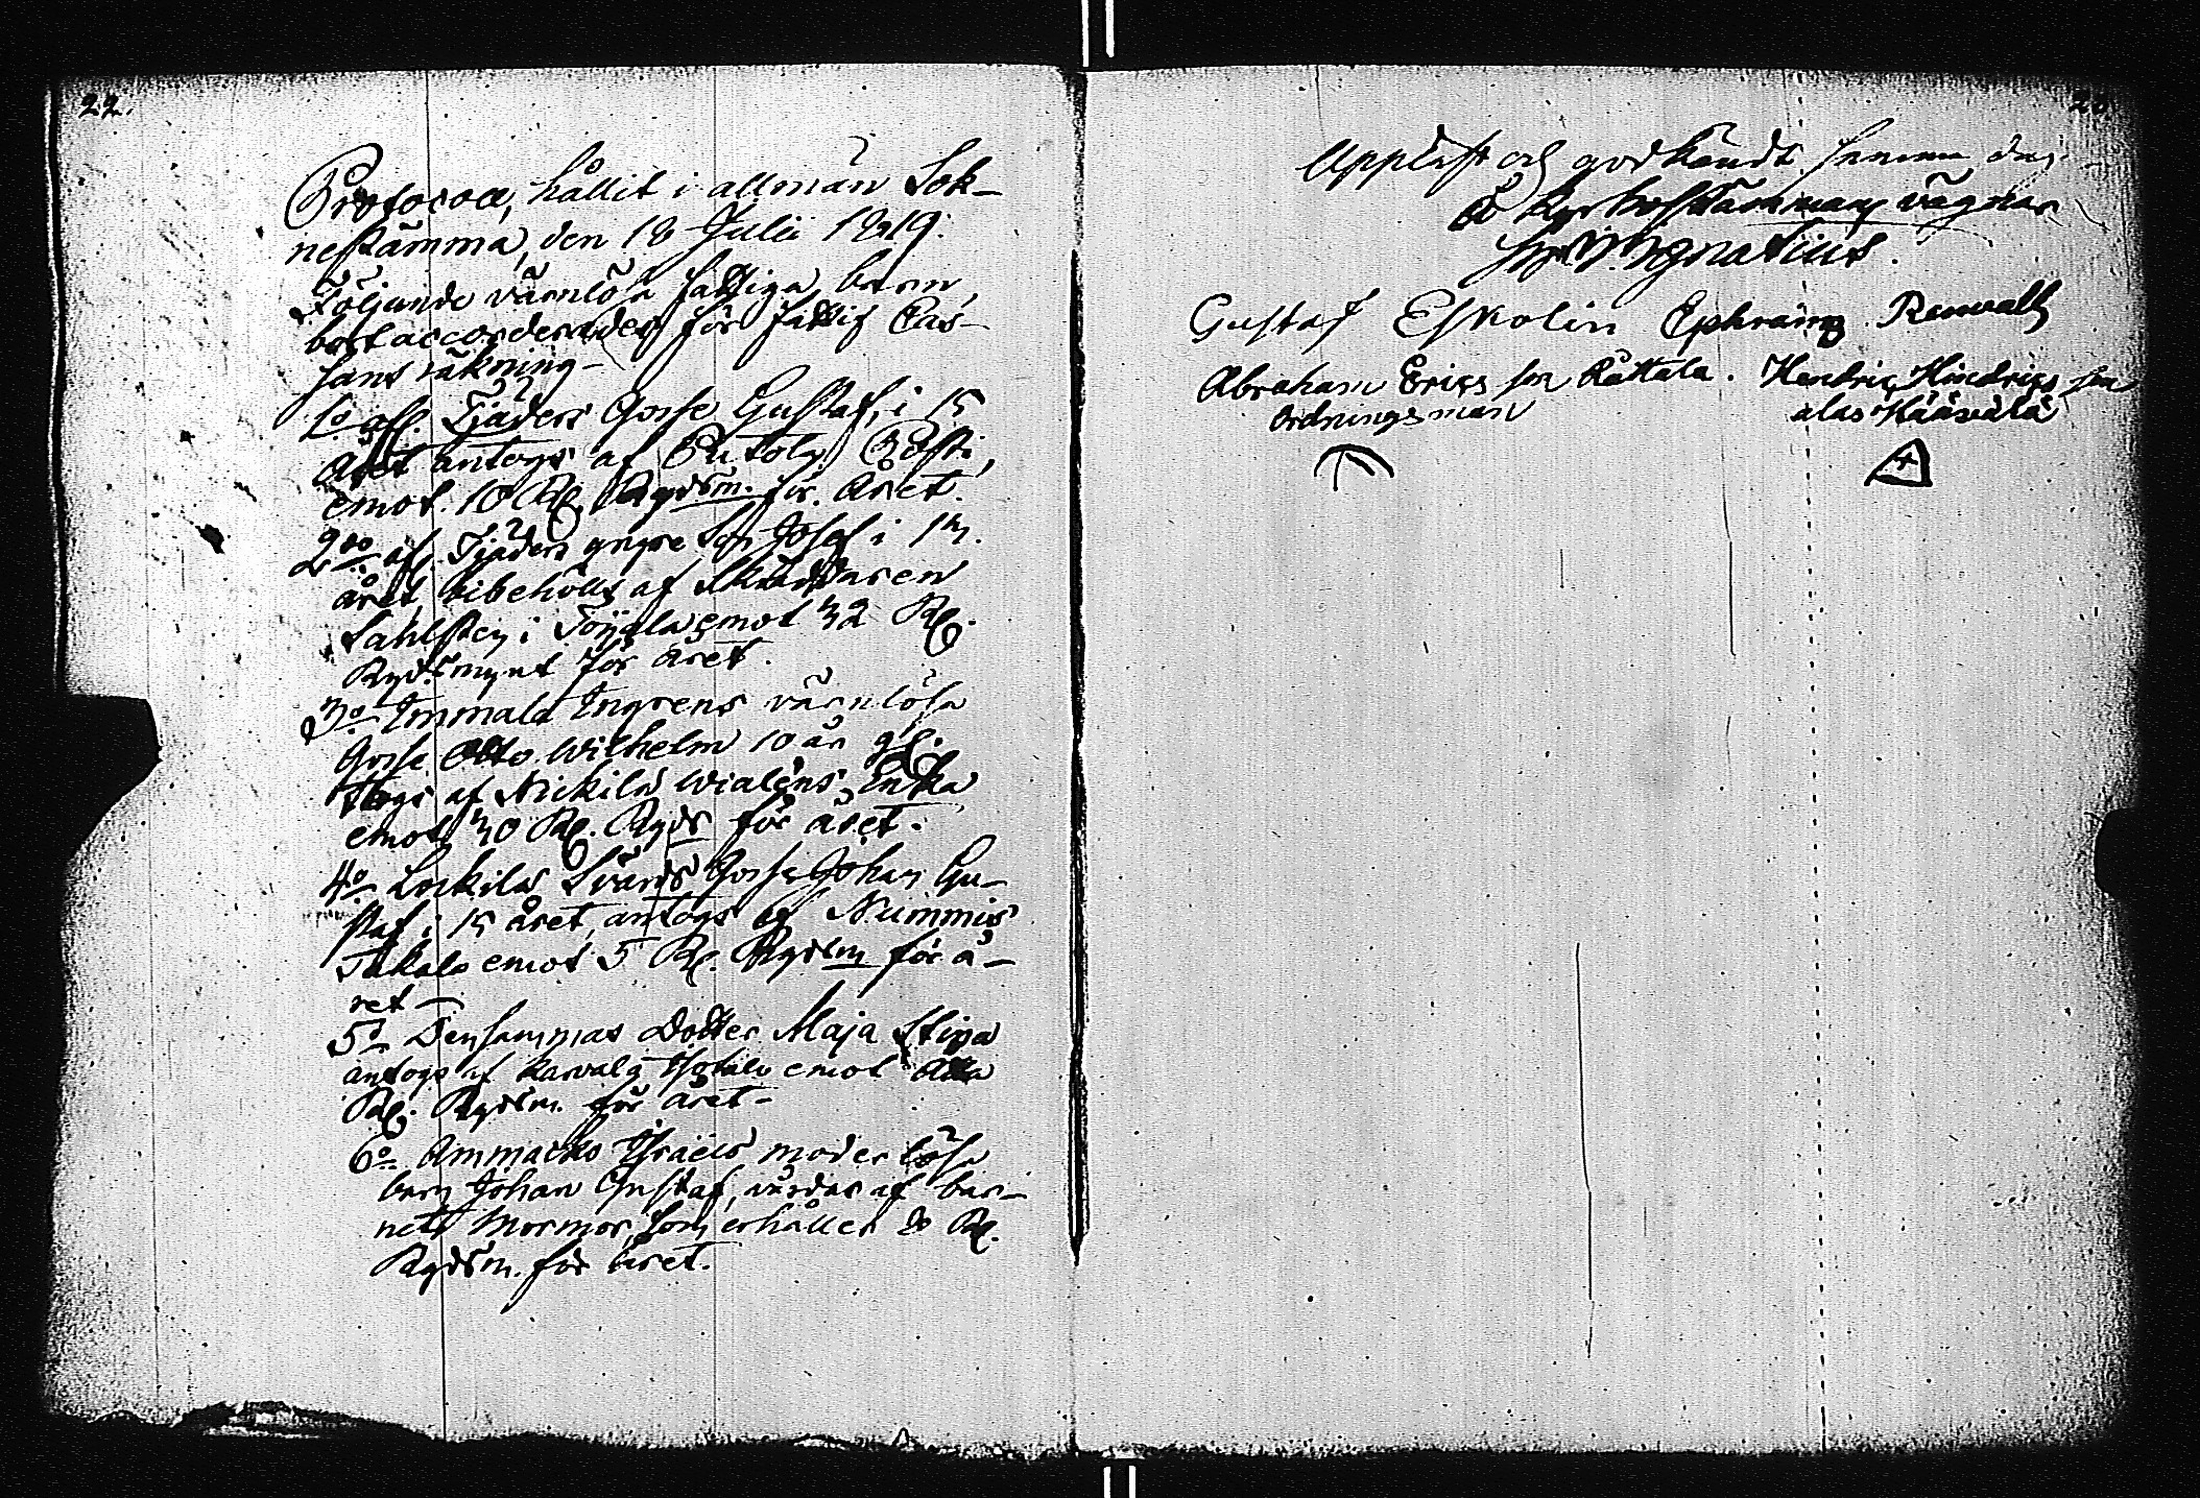 22.
Protocoll, hållit i allmän Sok-
nestämma, den 18 Julii 1819.
Följande värnlösa fattiga barn,
bortaccorderades för fattig Cas-
sans räkning-
1o afl. Tjäders Gosse Gustaf, i 15
Året antogs af Rusthly
emot 10 Rl. Rgdsm. för Året.
2do afl. Tjäders yngre Son Josef i 13.
året, bibehölls af Skräddaren
Sahlsten i Toijala emot 32 Rl.
Rgdsmynt för Året.
3o Immala Ingrens värnlösa
Gosse Otto Wilhelm 10 år gl.
togs af Nickilä Wialéns Enka
emot 30 Rl. Rgds för året.
4o Svärds Gosse Johan Gu-
staf i 15 året, antogs af Nummis
emot 5 Rl. Rgdsm för å-
ret
5o Densammas Dotter Maja Stina
antogs af emot Åtta
Rl. Rgdsm. för året-
6o Ammacko Israels moderlösa
barn Johan Gustaf, vårdas af bar-
nets Mormor, som erhåller 8 Rl.
Rgdsm. för året.
Uppläst och godkändt samma dag
å Kyrkostämmans vägnar
Ignatius.
Gustaf Eskolin Ephraim Renvall
Abraham Erics son Rattala. Hendric Hindrics son
ordningsman alas Kääsälä